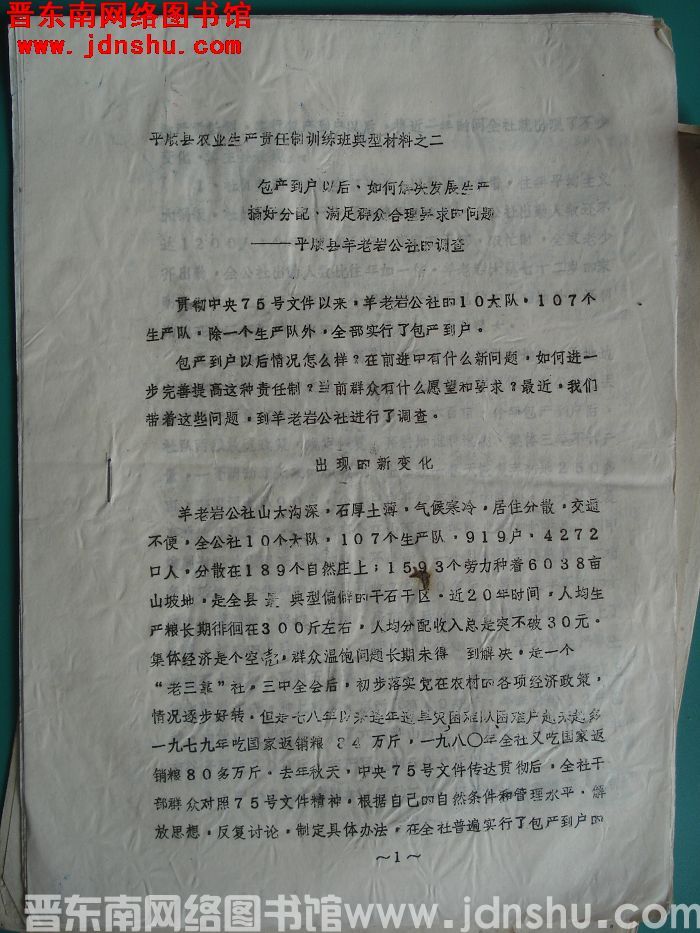 晋东南网络图书馆
www.jdnshu.com
平顺县农业生产责任制训练班典型材料之二
包产到户以后、如何解决发展生产
搞好分配、满足群众合理要求的问题
——平顺县羊老岩公社的调查
贯彻中央75号文件以来，羊老岩公社的10大队，107个
生产队，除一个生产队外，全部实行了包产到户。
包产到户以后情况怎么样？在前进中有什么新问题，如何进一
步完善提高这种责任制？当前群众有什么愿望和要求？最近，我们
带着这些问题，到羊老岩公社进行了调查。
出现的新变化
羊老岩公社山大沟深，石厚土薄，气候寒冷，居住分散，交通
不便，全公社10个大队，107个生产队，919户，4272
口人，分散在189个自然庄上；1593个劳力种着6038亩
山坡地，是全县最典型偏僻的干石干区。近20年时间，人均生
产粮长期徘徊在300斤左右，人均分配收入总是突不破30元。
集体经济是个空壳，群众温饱问题长期未得 到解决，是一个
“老三靠”社，三中全会后，初步落实党在农村的各项经济政策，
情况逐步好转，但是七八年以来连年遭旱灾困难队困难户越来越多
一九七九年吃国家返销粮 84 万斤，一九八〇年全社又吃国家返
销粮80多万斤。去年秋天，中央75号文件传达贯彻后，全社干
部群众对照75号文件精神，根据自己的自然条件和管理水平，解
放思想，反复讨论，制定具体办法，在全社普遍实行了包产到户的
～1～
晋东南网络图书馆www.jdnshu.com